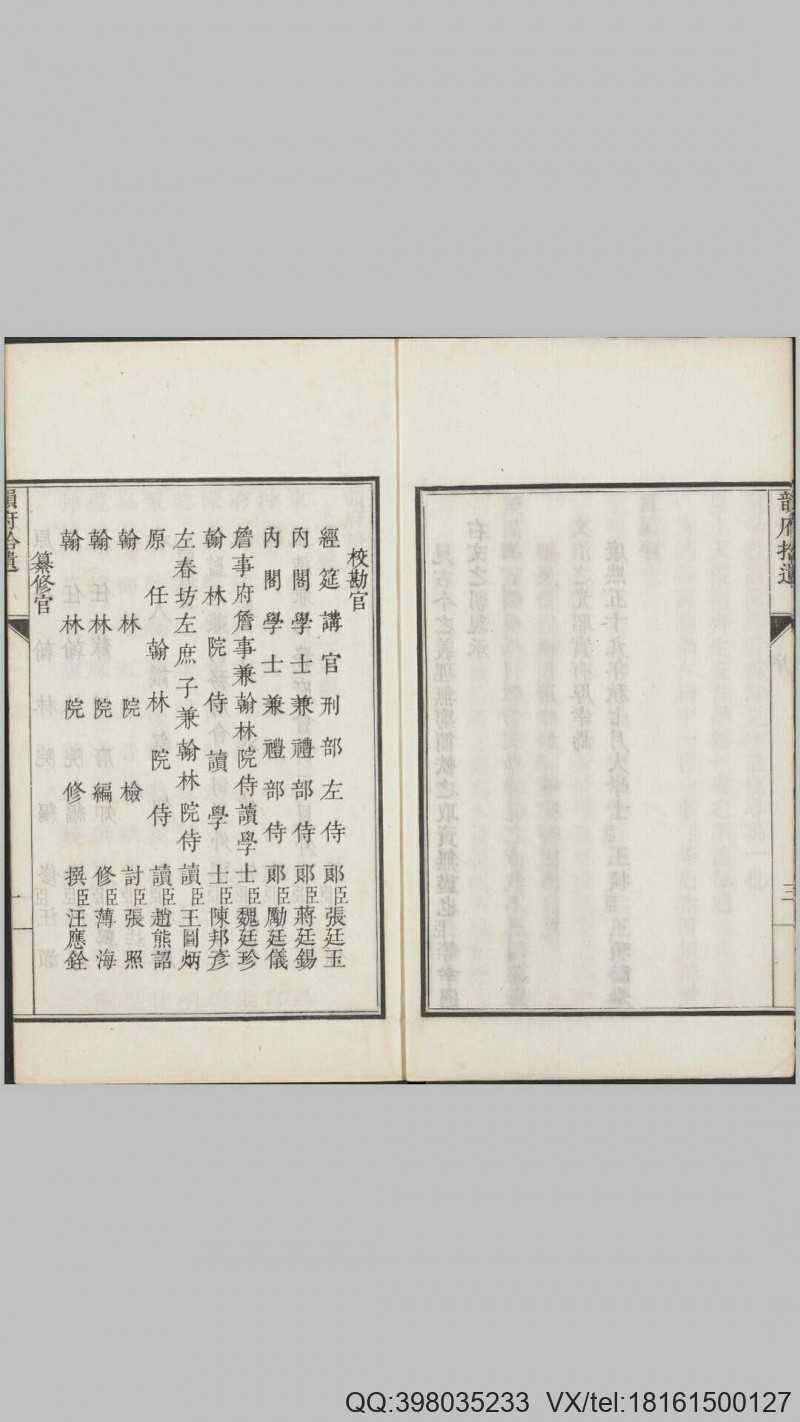 韻府拾遺
三
校勘官
經筵講官刑部左侍郞臣張廷玉
內閣學士兼禮部侍郞臣蔣廷錫
內閣學士兼禮部侍郞臣勵廷儀
詹事府詹事兼翰林院侍讀學士臣魏廷珍
翰林院侍讀學士臣陳邦彥
左春坊左庶子兼翰林院侍讀臣王圖炳
原任翰林院侍讀臣趙熊詔
翰林院檢討臣張照
翰林院編修臣薄海
翰林院修撰臣汪應銓
纂修官
韻府拾遺
一
QQ:398035233 VX/tel:18161500127